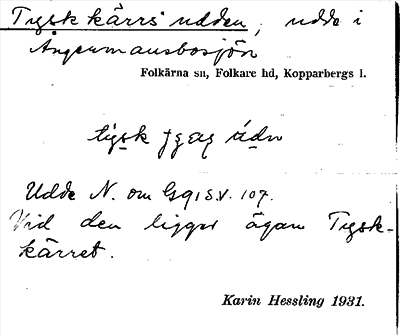 Tyskkärrsudden, udde i
Ångermansbosjön
Folkärna sn, Folkare hd, Kopparbergs l.
tysk
Udde N. om Gg1 S.V. 107.
Vid den ligger ägan Tysk-
kärret.
Karin Hessling 1931.